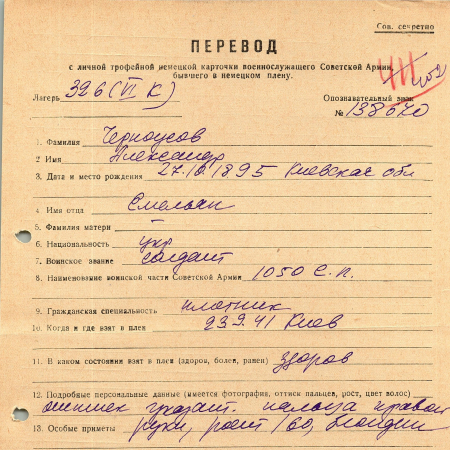 Сов. секретно
ПЕРЕВОД
с личной трофейной немецкой карточки военнослужащего Советской Армии,
бывшего в немецком плену.
Лагерь 326 (VI К)
Опознавательный знак
№ 138670
1. Фамилия Черноусов
2 Имя Александр
3. Дата и место рождения 27.10.1895 Киевская обл
4 Имя отца Емельян
5. Фамилия матери —
6. Национальность укр
7. Воинское звание солдат
8. Наименовние воинской части Советской Армии 1050 с.п.
9. Гражданская специальность плотник
10. Когда и где взят в плен 23.9.41 Киев
11. В каком состоянии взят в плен (здоров, болен, ранен) здоров
12. Подробные персональные данные (имеется фотография, оттиск пальцев, рост, цвет волос)
оттиск указат. пальца правой
13. Особые приметы руки, рост 160, блондин